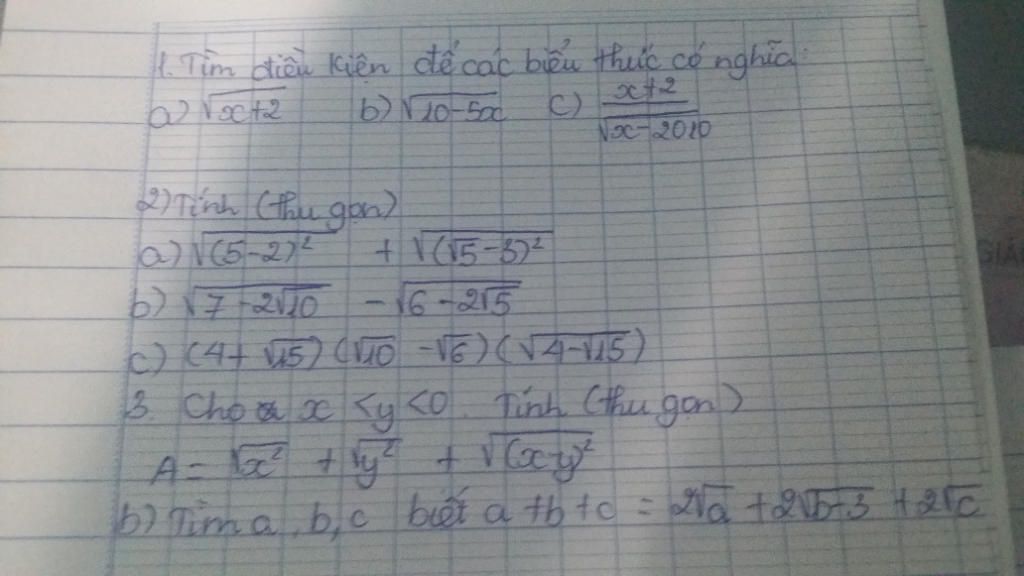 1. Tìm điều kiện để các biểu thức có nghĩa:
a) √(x+2) b) √(10-5x) c) (x+2)/√(x-2010)
2) Tính (thu gọn)
a) √((5-2)²) + √((√5-3)²)
b) √(7-2√10) - √(6-2√5)
c) (4+√15)(√10-√6)(√(4-√15))
3. Cho x < y < 0. Tính (thu gọn)
A = √x² + √y² + √((x-y)²)
b) Tìm a, b, c biết a+b+c = 2√a + 2√(b+3) + 2√c